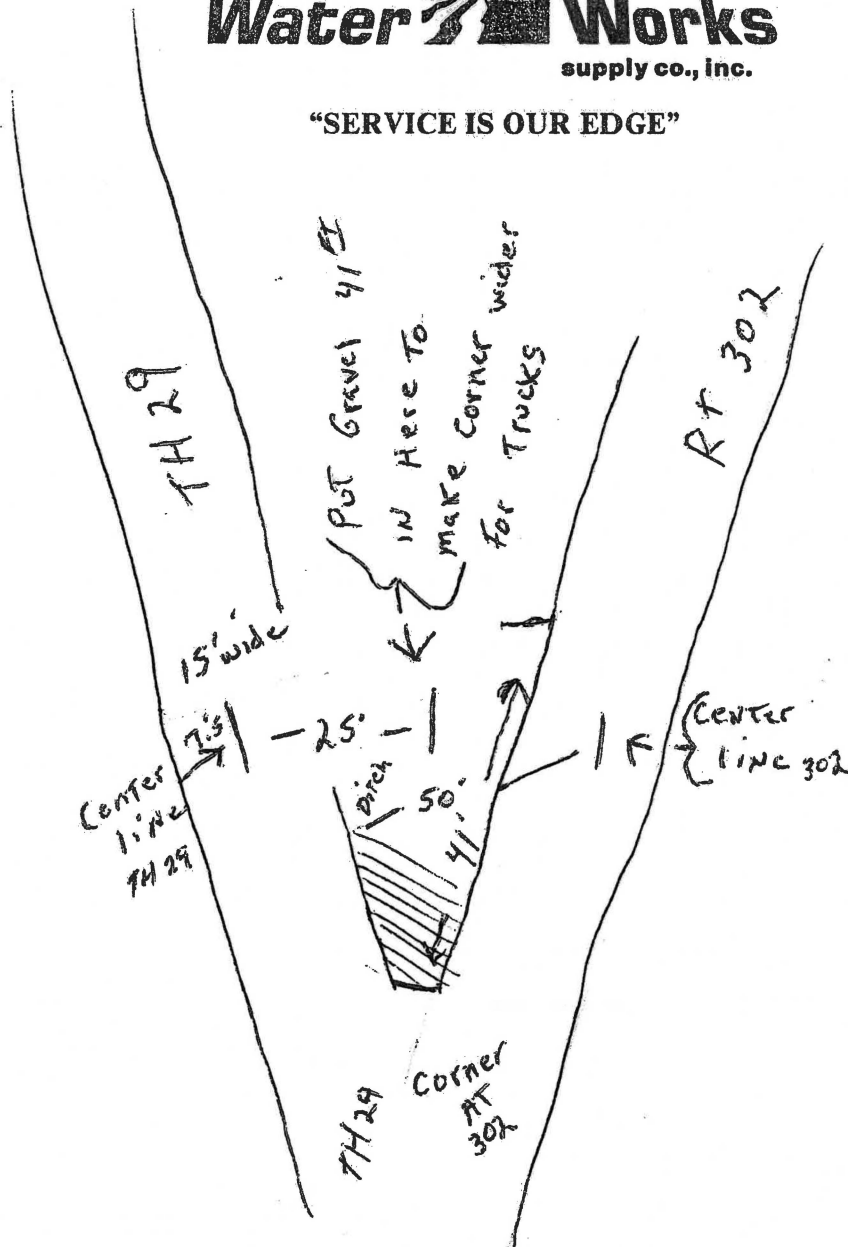 Water Works
supply co., inc.
“SERVICE IS OUR EDGE”
PUT Gravel 41 FT
IN Here To
make Corner wider
For Trucks
TH 29
Rt 302
15' wide
7.5
25'
Center
line
TH 29
CENTER
LINE 302
Ditch
50'
41'
TH 29
Corner
AT
302